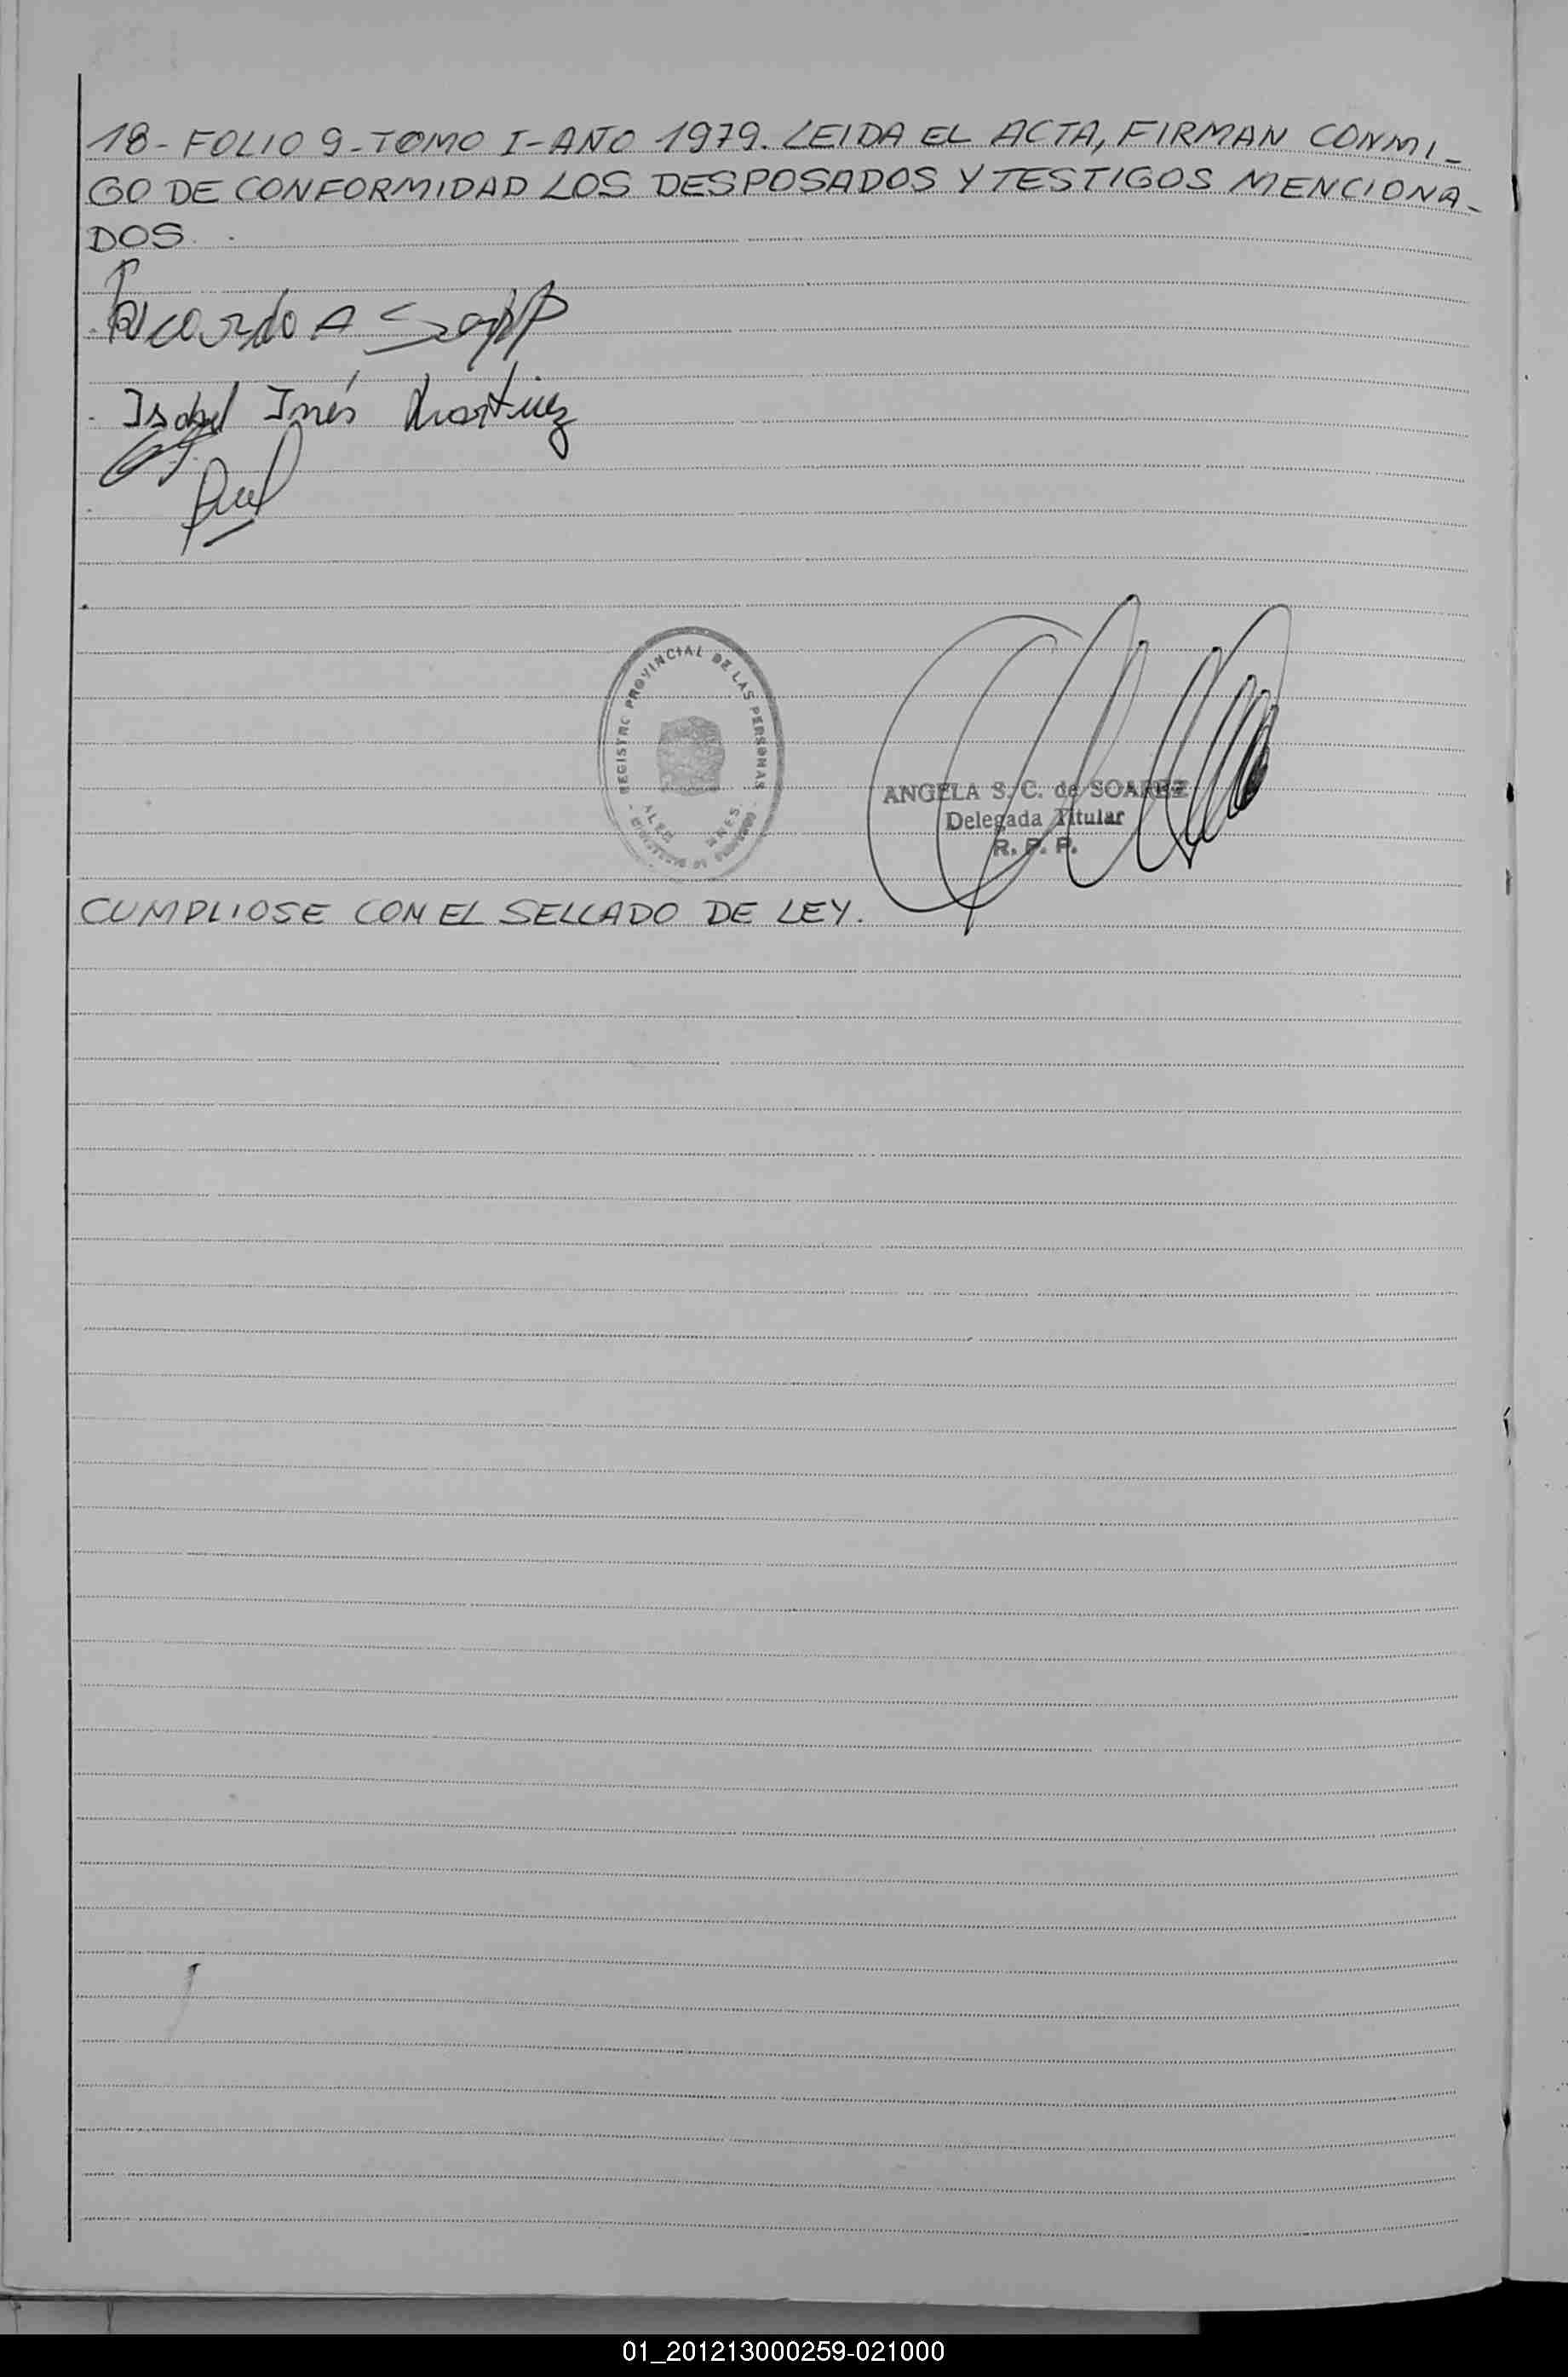 18-FOLIO 9-TOMO I-AÑO 1979. LEIDA EL ACTA, FIRMAN CONMI-
GO DE CONFORMIDAD LOS DESPOSADOS Y TESTIGOS MENCIONA-
DOS.
Ricardo A
Isabel Inés Martinez
REGISTRO PROVINCIAL DE LAS PERSONAS
ANGELA S. C. de SOAREZ
Delegada Titular
R. P. P.
CUMPLIOSE CON EL SELLADO DE LEY.
01_201213000259-021000